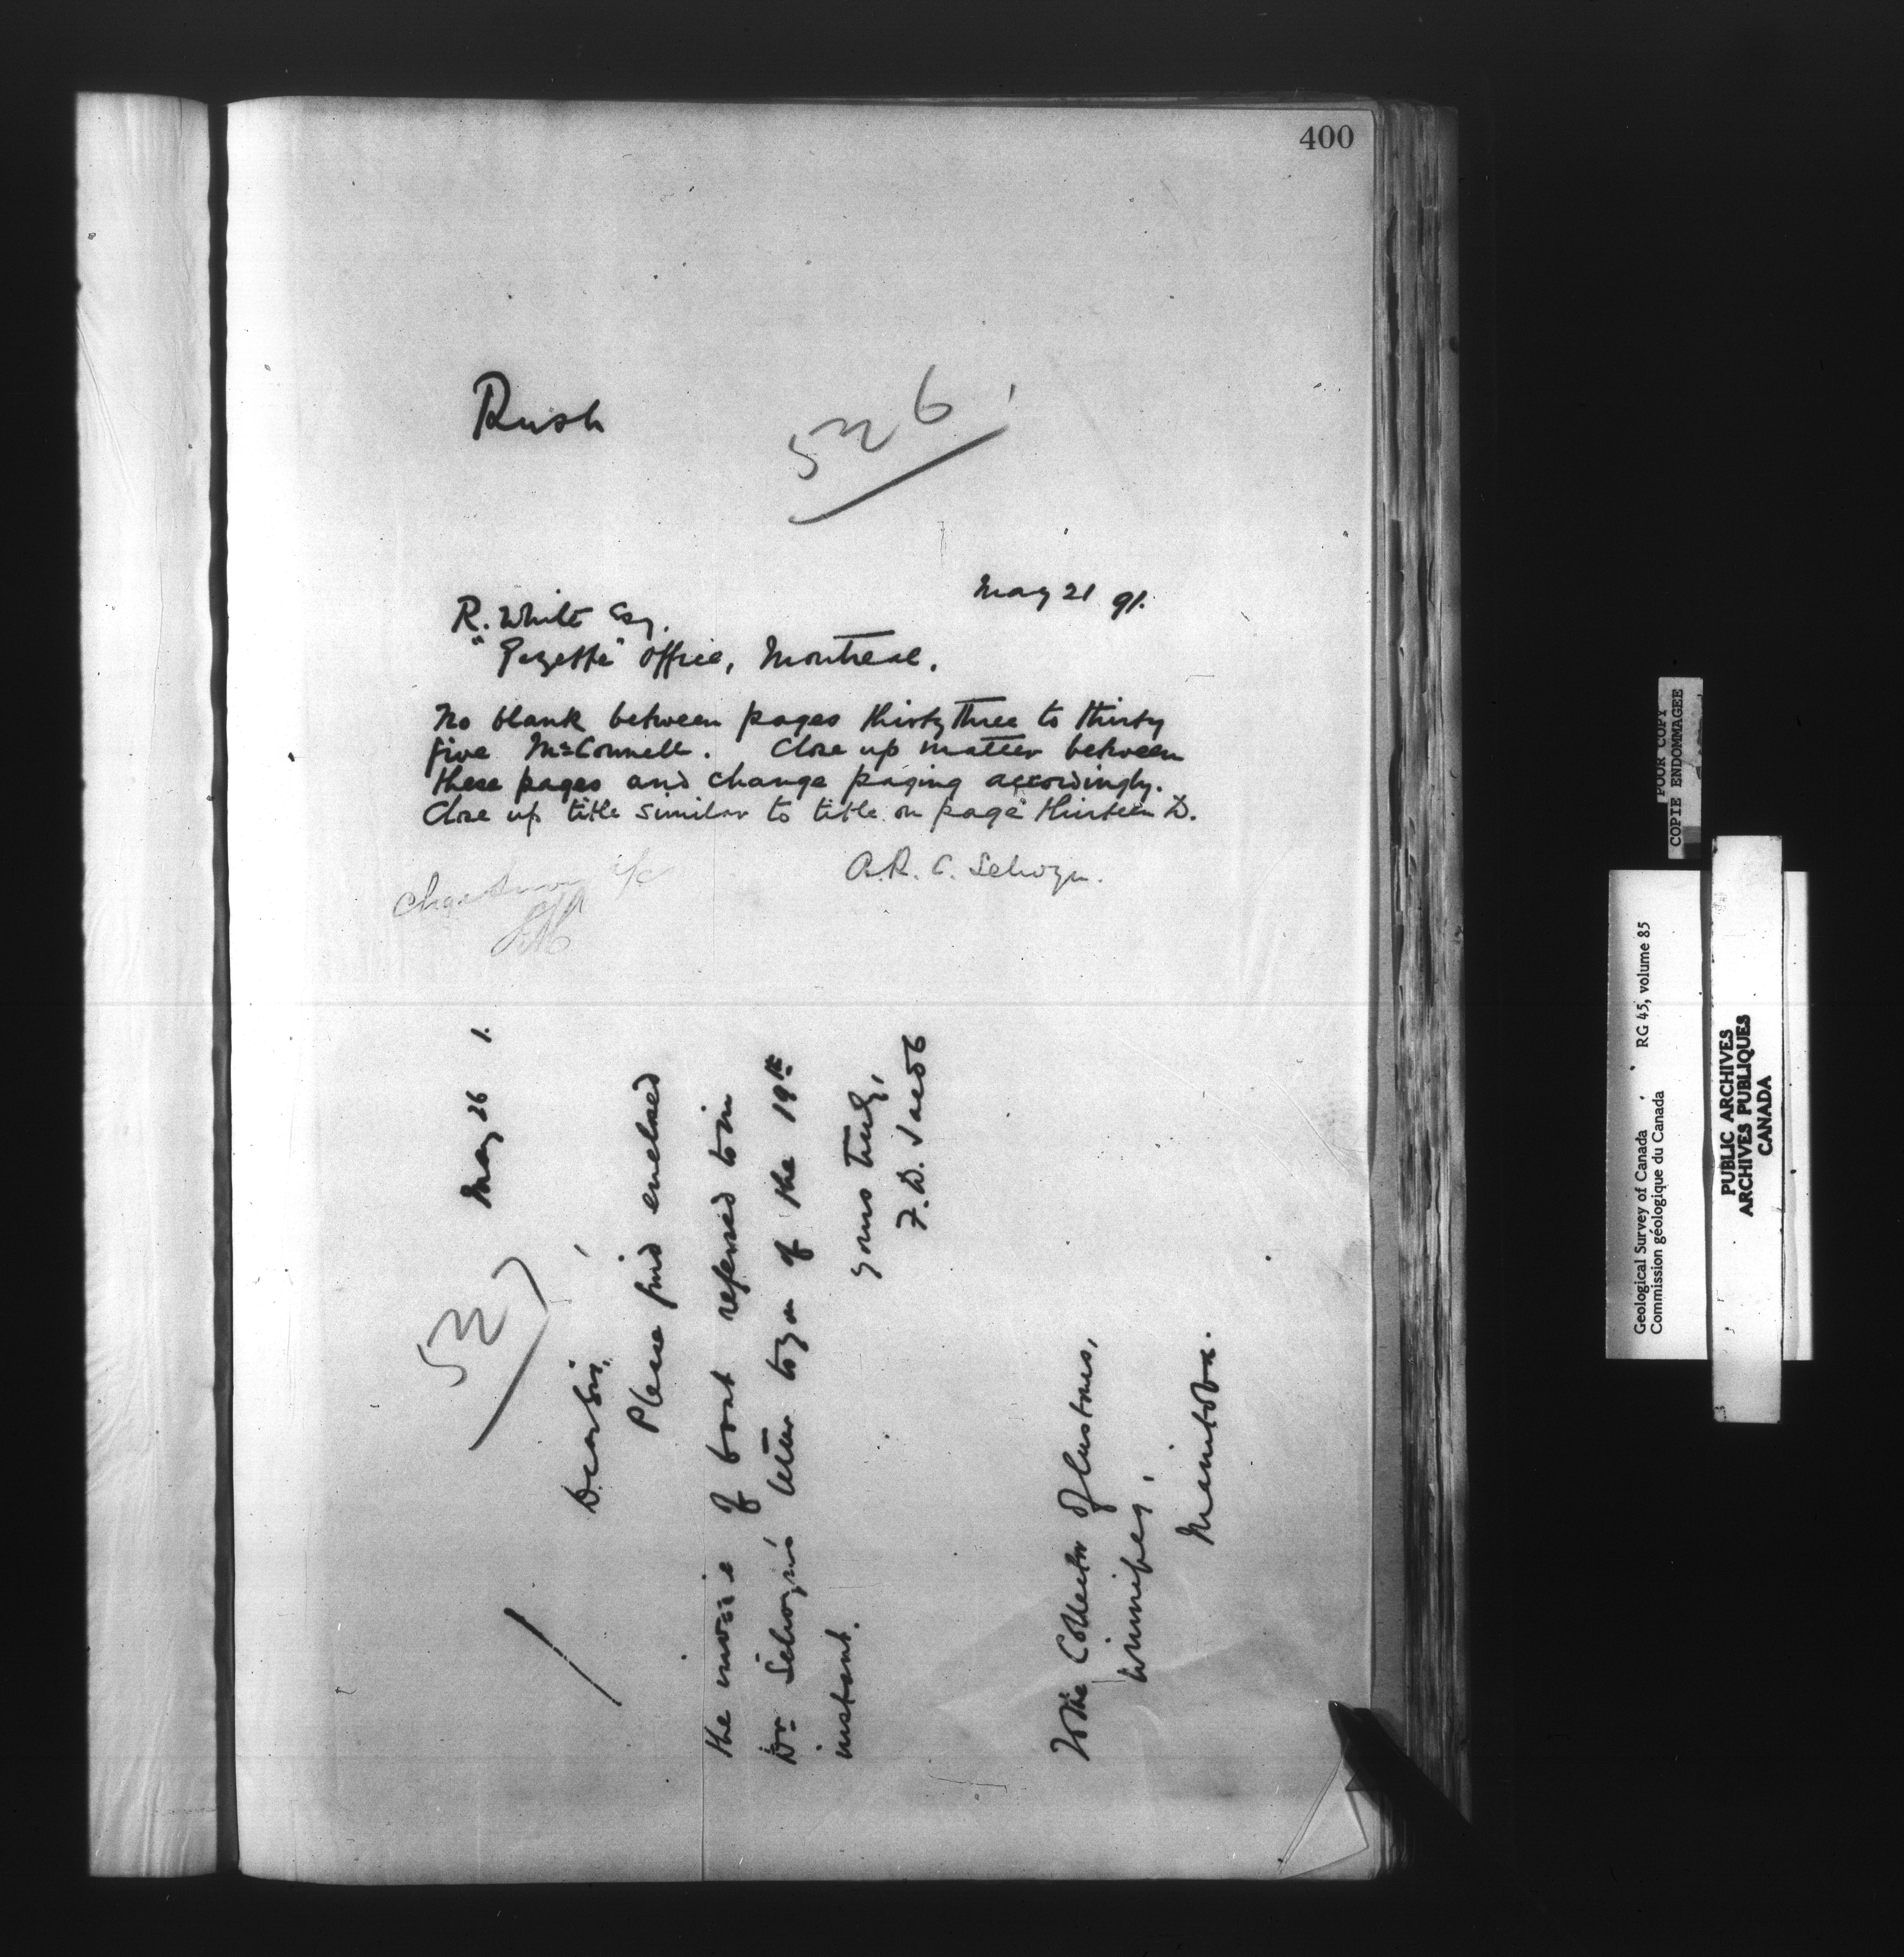 400
Rush
526
May 21 91.
R. White Esq.
"Gazette" Office, Montreal.
No blank between pages thirty three to thirty
five McConnell. Close up matter between
these pages and change paging accordingly.
Close up title similar to title on page thirteen D.
A.R.C. Selwyn.
527
May 26 1.
Dear Sir,
Please find enclosed
the invoice of boat referred to in
Dr Selwyn's letter to you of the 19th
instant.
Yours truly,
F.D. Jacob
To the Collector of Customs,
Winnipeg,
Manitoba.
POOR COPY
COPIE ENDOMMAGEE
Geological Survey of Canada RG 45, volume 85
Commission géologique du Canada
PUBLIC ARCHIVES
ARCHIVES PUBLIQUES
CANADA